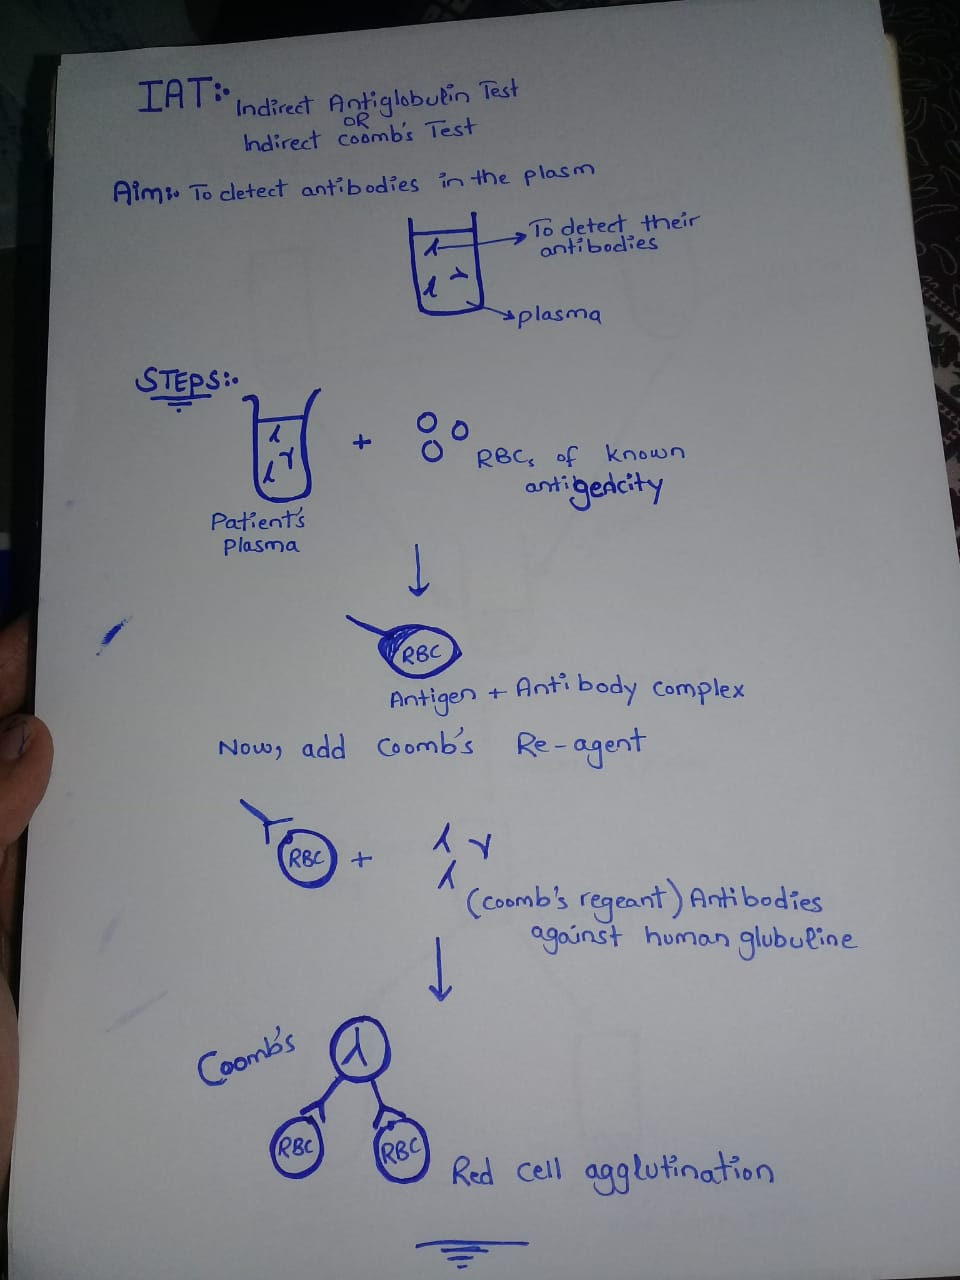 IAT:-
Indirect Antiglobulin Test
OR
Indirect coomb's Test
Aim:- To detect antibodies in the plasm
To detect their
antibodies
plasma
STEPS:-
+
RBCs of known
antigedcity
Patient's
Plasma
RBC
Antigen + Antibody complex
Now, add Coomb's Re-agent
RBC +
(coomb's regeant) Antibodies
against human glubuline
Coomb's
RBC RBC
Red cell agglutination